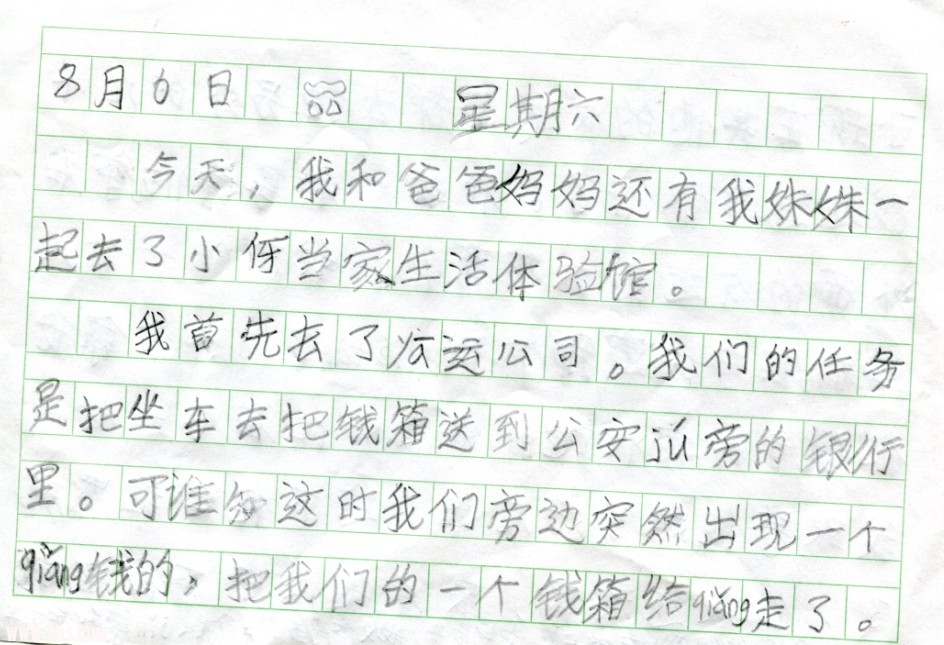 8月6日 星期六
今天,我和爸爸妈妈还有我姝姝一
起去了小伢当家生活体验馆。
我首先去了公运公司。我们的任务
是把坐车去把钱箱送到公安jú旁的银行
里。可谁知这时我们旁边突然出现一个
qiǎng钱的,把我们的一个钱箱给qiǎng走了。